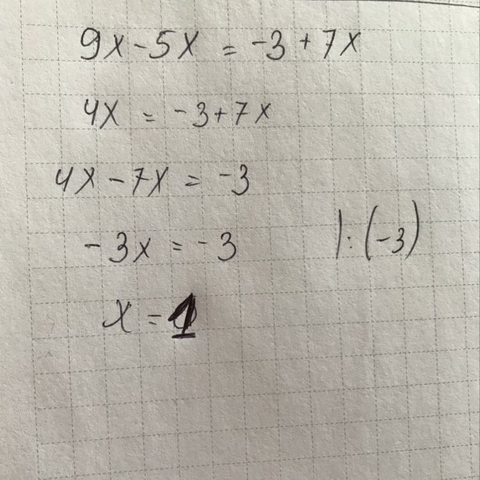 9x-5x = -3+7x
4x = -3+7x
4x-7x = -3
-3x = -3 |:(-3)
x = 1